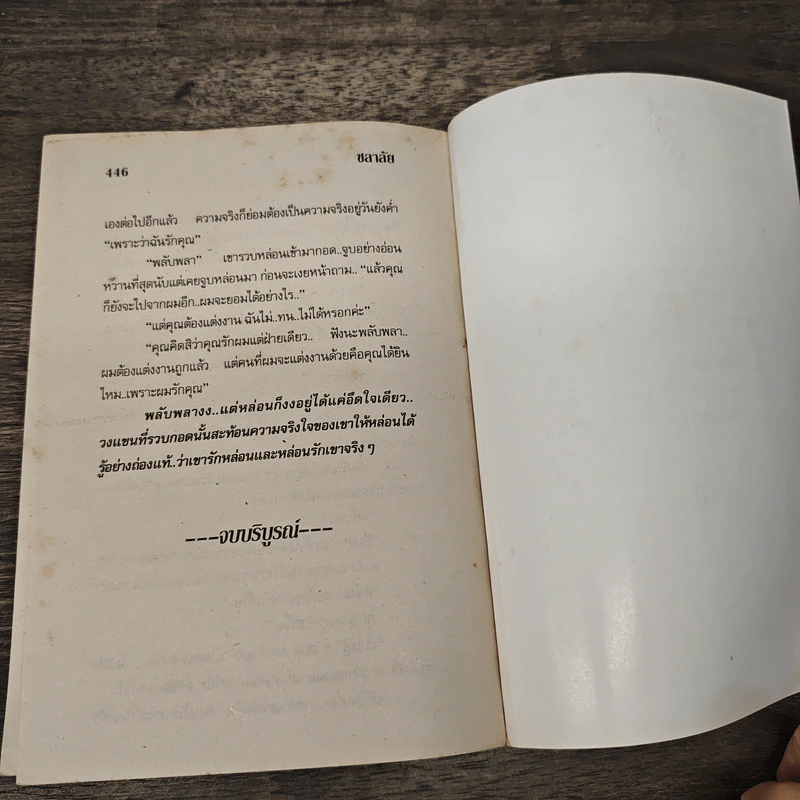 446
ชลาลัย
เองต่อไปอีกแล้ว ความจริงก็ย่อมต้องเป็นความจริงอยู่วันยังค่ำ
“เพราะว่าฉันรักคุณ”
“พลับพลา” เขารวบหล่อนเข้ามากอด..จูบอย่างอ่อน
หวานที่สุดนับแต่เคยจูบหล่อนมา ก่อนจะเงยหน้าถาม.. “แล้วคุณ
ก็ยังจะไปจากผมอีก..ผมจะยอมได้อย่างไร..”
“แต่คุณต้องแต่งงาน ฉันไม่..ทน..ไม่ได้หรอกค่ะ”
“คุณคิดสิว่าคุณรักผมแต่ฝ่ายเดียว.. ฟังนะพลับพลา..
ผมต้องแต่งงานถูกแล้ว แต่คนที่ผมจะแต่งงานด้วยคือคุณได้ยิน
ไหม..เพราะผมรักคุณ”
พลับพลางง..แต่หล่อนก็งงอยู่ได้แค่อึดใจเดียว..
วงแขนที่รวบกอดนั้นสะท้อนความจริงใจของเขาให้หล่อนได้
รู้อย่างถ่องแท้..ว่าเขารักหล่อนและหล่อนรักเขาจริง ๆ
---จบบริบูรณ์---